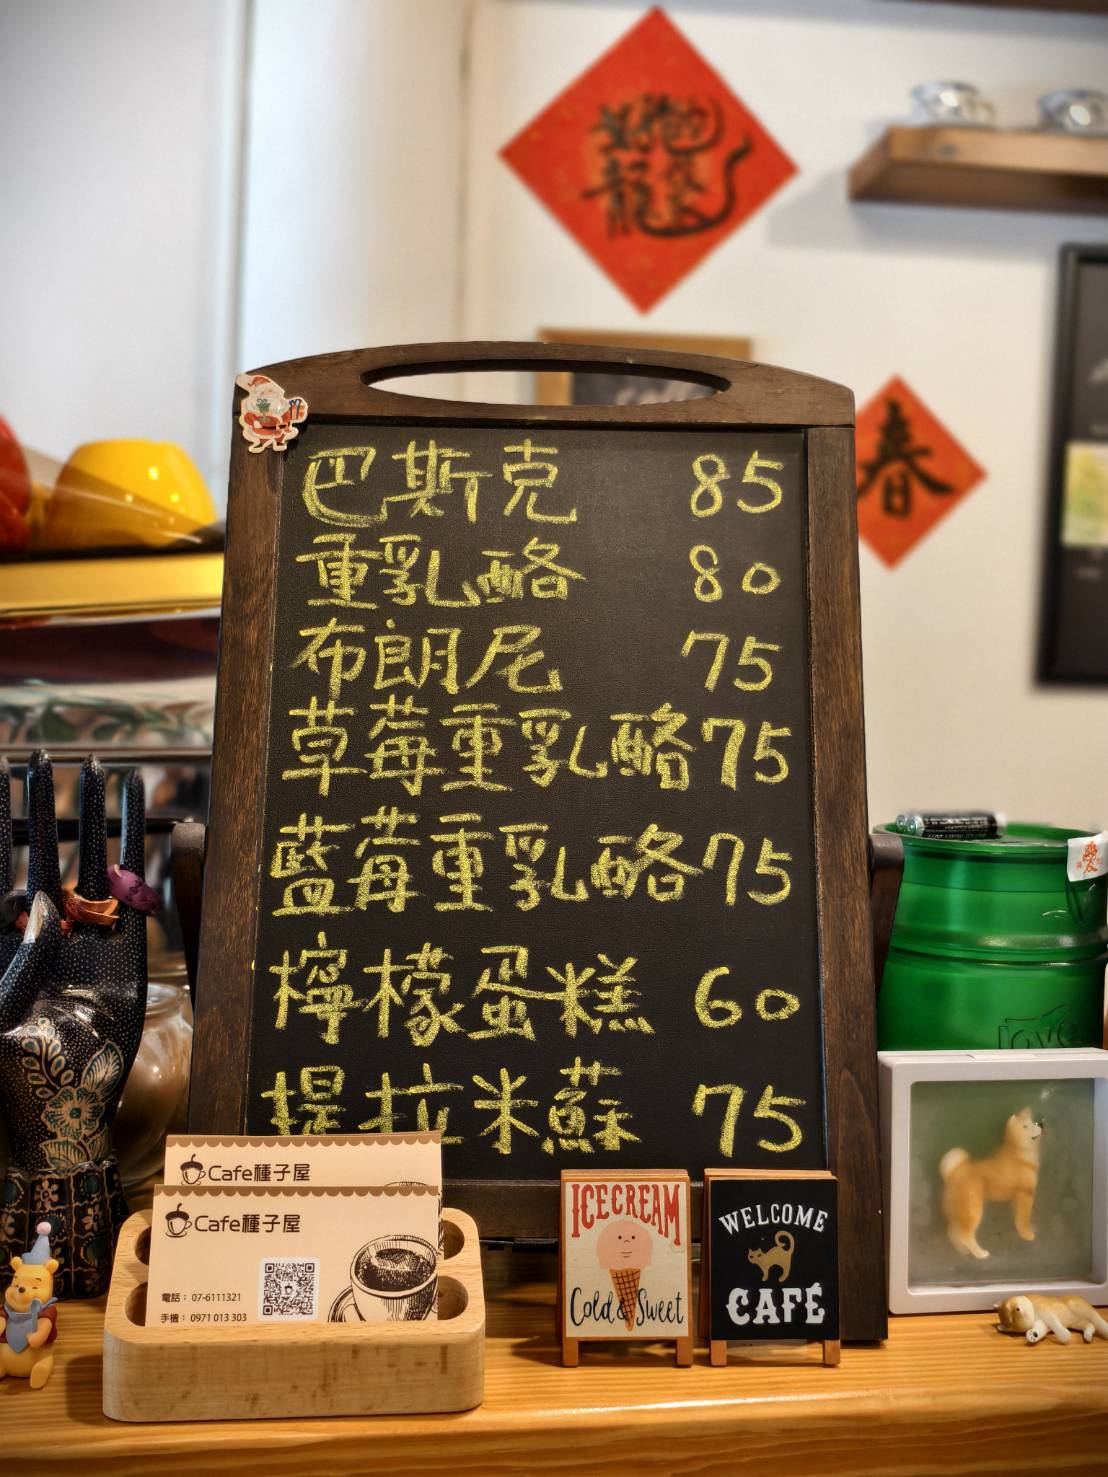 春
巴斯克 85
重乳酪 80
布朗尼 75
草莓重乳酪 75
藍莓重乳酪 75
檸檬蛋糕 60
提拉米蘇 75
Cafe種子屋
Cafe種子屋
電話： 07-6111321
手機： 0971 013 303
ICECREAM
Cold & Sweet
WELCOME
CAFÉ